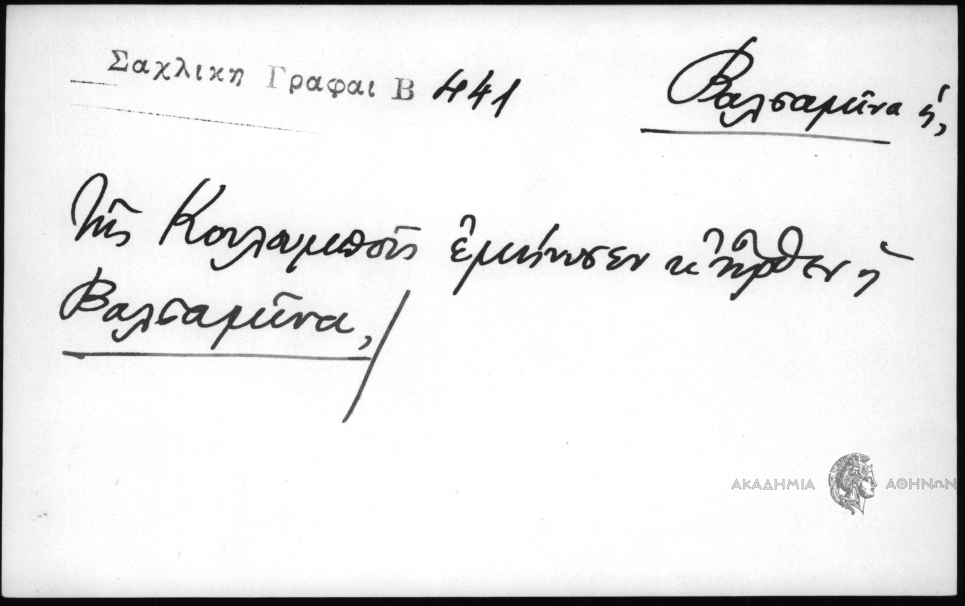 Σαχλικη Γραφαι Β 441
Βαλσαμῖνα ἡ,
Τῆς Κουταγιωτῆς ἐμήνυσεν κ' ἦρθεν ἡ
Βαλσαμῖνα,
ΑΚΑΔΗΜΙΑ ΑΘΗΝΩΝ